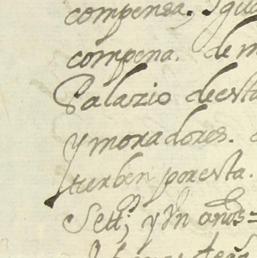 compensa. Igua
compena. de m
Palazio de esta
y moradores.
turben por esta.
Sett; y Vn años=